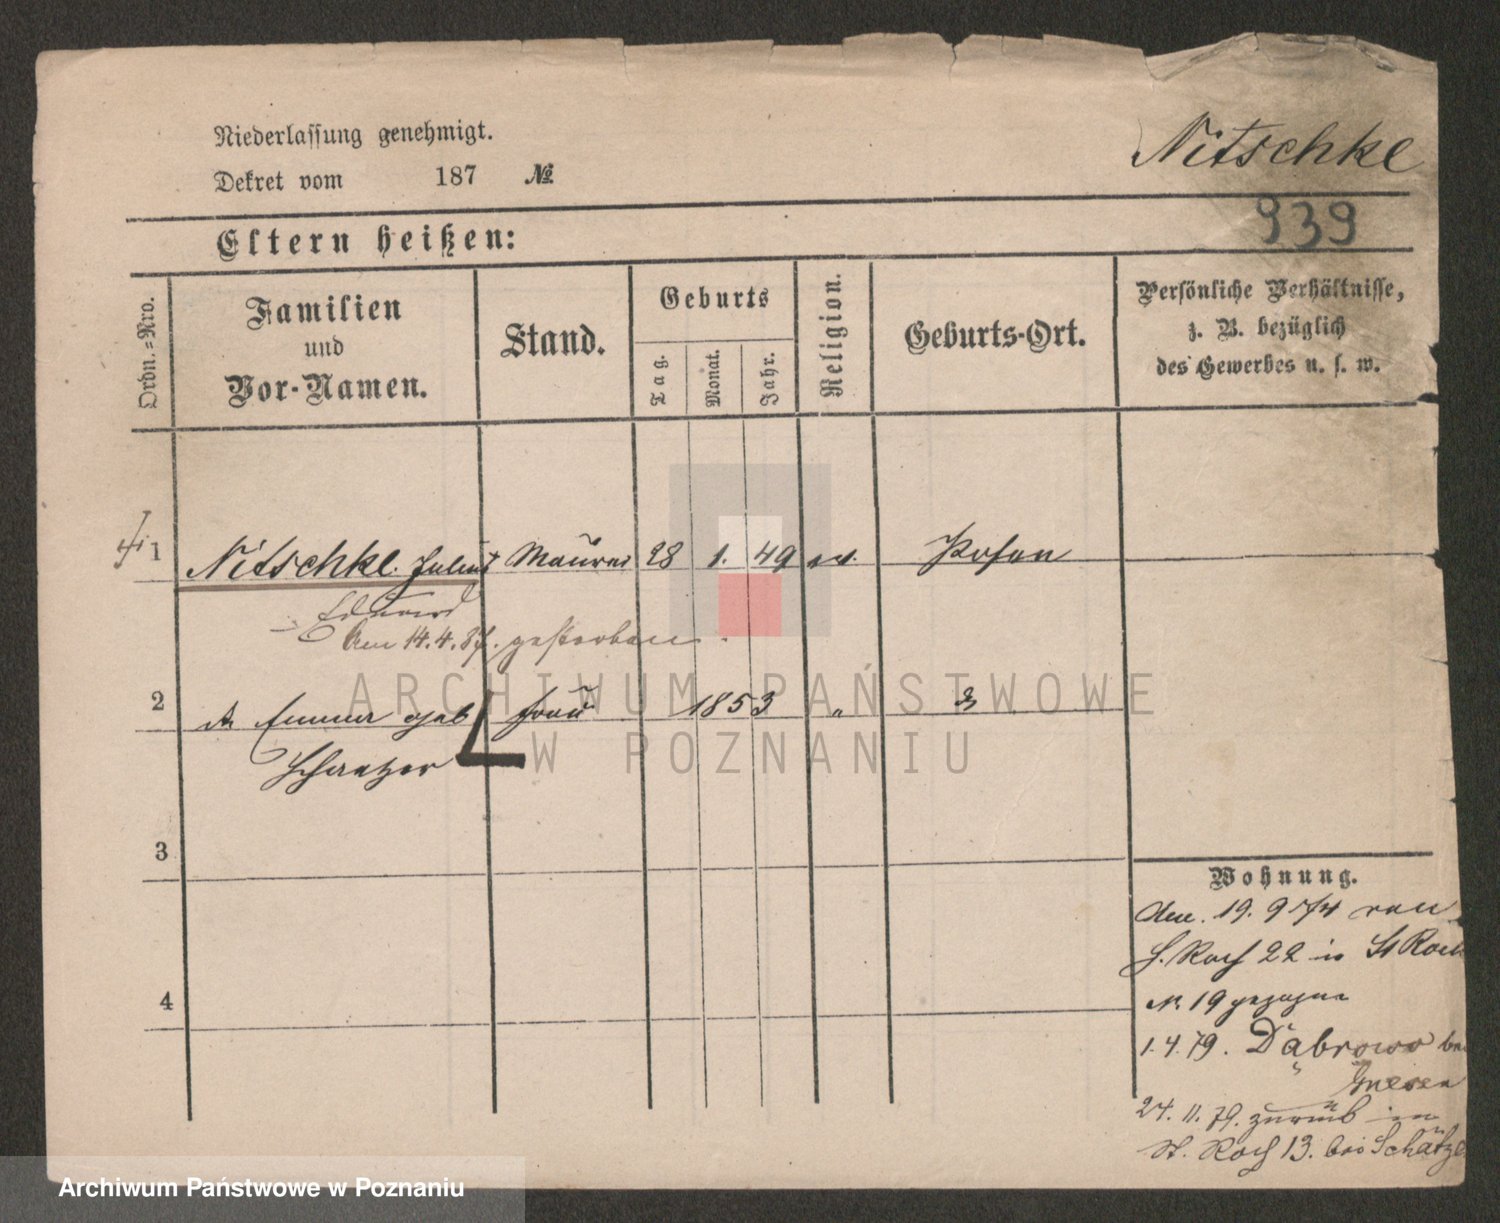 Niederlassung genehmigt.
Dekret vom 187 №
Nitschke
939
Eltern heißen:
Ordn.-Nro.
Familien
und
Vor-Namen.
Stand.
Geburts
Tag.
Monat.
Jahr.
Religion.
Geburts-Ort.
Persönliche Verhältnisse,
z. B. bezüglich
des Gewerbes u. s. w.
1 Nitschke. Julius Maurer 28 1. 49 ev. Posen
Eduard
Am 14.4.87. gestorben.
2 Emma geb Frau 1853 "
Schaetzer
3
4
Wohnung.
Am. 19. 9 74 von
St. Roch 22 in St Roch
N. 19 gezogen
1.4.79. Dąbrowo bei
Gnesen
24.11.79. zurück in
St. Roch 13. bei Schätze
ARCHIWUM PAŃSTWOWE
W POZNANIU
Archiwum Państwowe w Poznaniu